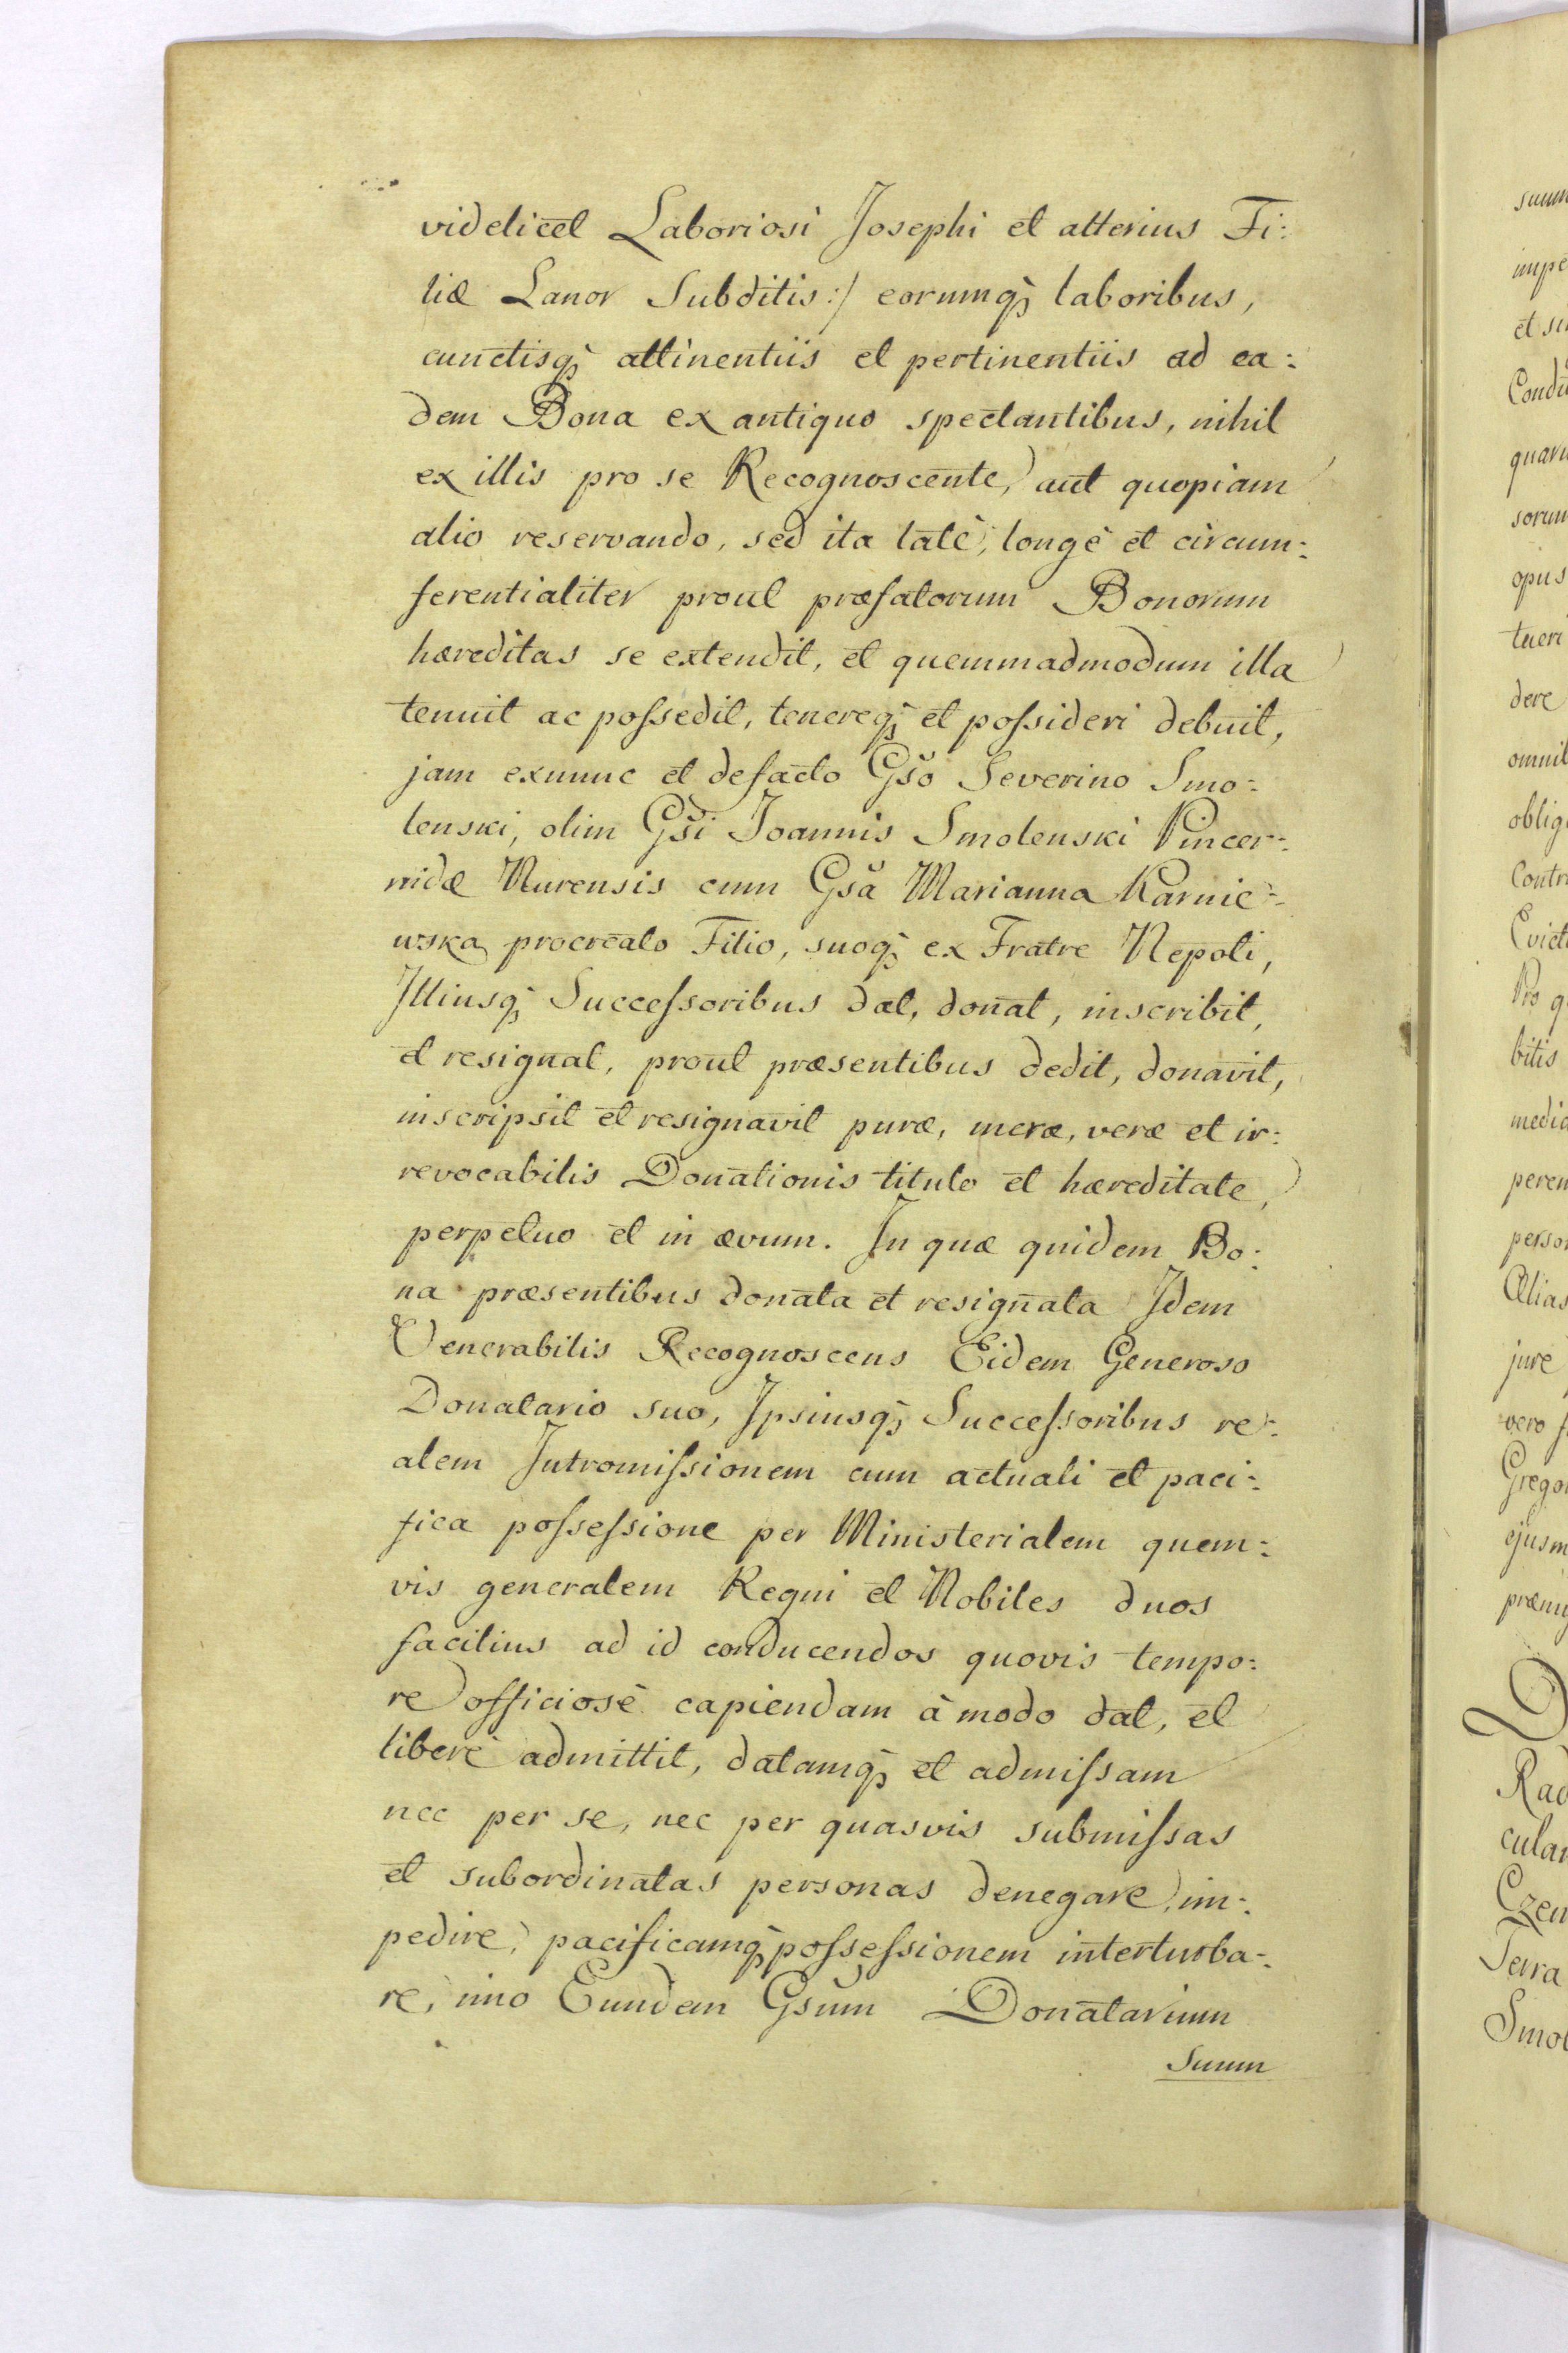 videlicet Laboriosi Josephi et alterius Fi:
liæ Lanor Subditis:/ eorumq; laboribus,
cunctisq; attinentiis et pertinentiis ad ea:
dem Bona ex antiquo spectantibus, nihil
ex illis pro se Recognoscente, aut quopiam
alio reservando, sed ita latè, longè et circum:
ferentialiter prout præfatorum Bonorum
hæreditas se extendit, et quemmadmodum illa
tenuit ac poſsedit, tenereq; et poſsideri debuit,
jam exnunc et defacto Gso Severino Smo:
lenski, olim Gsi Joannis Smolenski Pincer:
nidæ Nurensis cum Gsa Marianna Karnie:
wska procreato Filio, suoq; ex Fratre Nepoti,
Illiusq; Succeſsoribus dat, donat, inscribit,
et resignat, prout præsentibus dedit, donavit,
inscripsit et resignavit puræ, meræ, veræ et ir:
revocabilis Donationis titulo et hæreditate,
perpetuo et in ævum. In quæ quidem Bo:
na præsentibus donata et resignata Idem
Venerabilis Recognoscens Eidem Generoso
Donatario suo, Ipsiusq; Succeſsoribus re:
alem Intromiſsionem cum actuali et paci:
fica poſseſsione per Ministerialem quem:
vis generalem Regni et Nobiles duos
facilius ad id conducendos quovis tempo:
re officiosè capiendam à modo dat, et
liberè admittit, datamq; et admiſsam
nec per se, nec per quasvis submiſsas
et subordinatas personas denegare, im:
pedire, pacificamq; poſseſsionem interturba:
re, imo Eundem Gsum Donatarium
Suum
summ
impe
et su
Condi
quaru
sorum
opus
tueri
dere
omnib
oblig
Contr
Evict
Pro q
bitis
media
perem
person
Alias
jure
vero
Grego
ejusm
præmi
D
Rad
cular
Czen
Terra
Smol